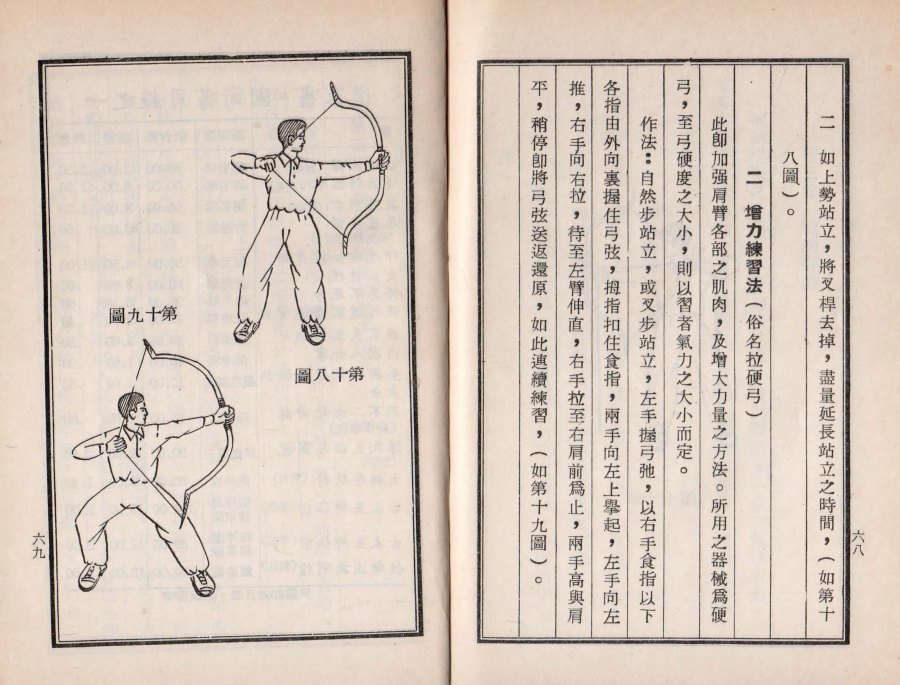 二　如上勢站立，將叉桿去掉，盡量延長站立之時間，（如第十
八圖）。
二　增力練習法（俗名拉硬弓）
此卽加强肩臂各部之肌肉，及增大力量之方法。所用之器械爲硬
弓，至弓硬度之大小，則以習者氣力之大小而定。
作法：自然步站立，或叉步站立，左手握弓弛，以右手食指以下
各指由外向裏握住弓弦，拇指扣住食指，兩手向左上舉起，左手向左
推，右手向右拉，待至左臂伸直，右手拉至右肩前爲止，兩手高與肩
平，稍停卽將弓弦送返還原，如此連續練習，（如第十九圖）。
六八
圖八十第
圖九十第
六九